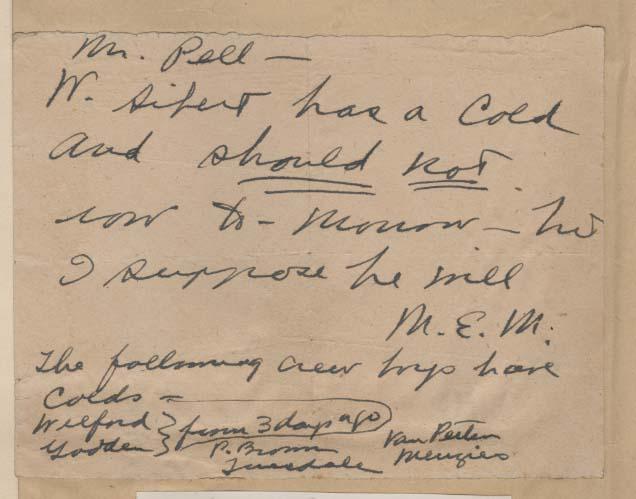 Mr. Pell —
W. Sifert has a Cold
And should not
row to-morrow — but
I suppose he will
M. E. M.
The following crew boys have
Colds —
Welford } from 3 days ago
Godden
P. Brown Van Petten
Truesdale Menzies